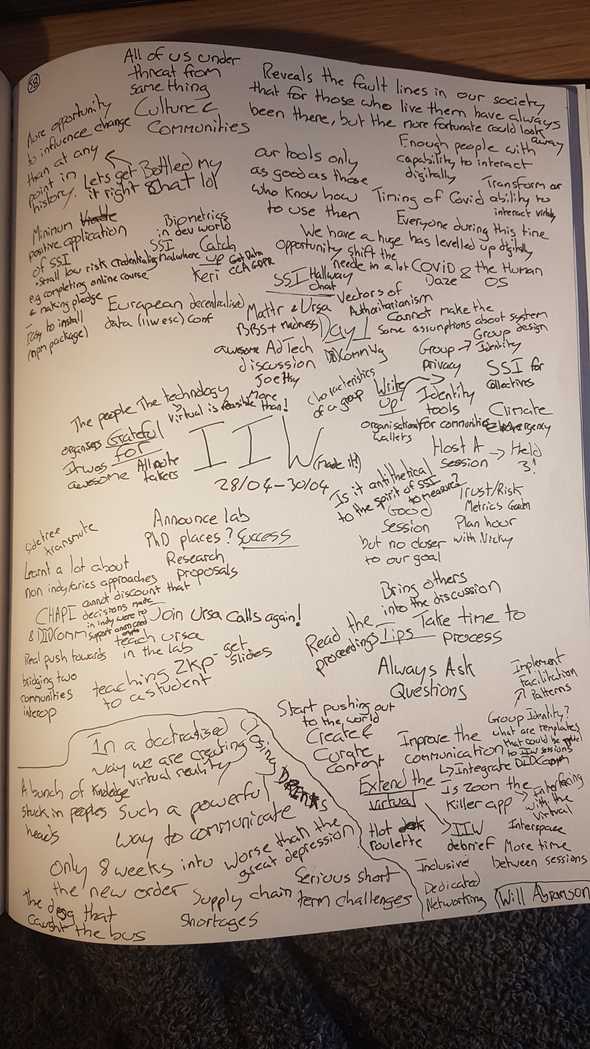 58
All of us under
threat from
same thing
Culture &
Communities
Reveals the fault lines in our society
that for those who live them have always
been there, but the more fortunate could look
away
More opportunity
to influence change
than at any
point in
history.
Let's get
it right
Bottled my
chat lol
our tools only
as good as those
who know how
to use them
Enough people with
capability to interact
digitally
Timing of Covid
Transform our
ability to
interact virtually
Everyone during this time
has levelled up digitally
We have a huge
opportunity shift the
needle in a lot
COVID & the Human
Daze OS
Minimum
positive application
of SSI
- small low risk credential
e.g completing online course
& making pledge
Easy to install
(npm package)
Biometrics
in dev world
SSI
Catch
up
Keri
Get Data
CCA GDPR
SSI Hallway
Chat
Vectors of
Authoritarianism
European decentralised
data (iiwesc) conf
Mattr & Ursa
BBS+ madness
Day 1
DIDCommWg
awesome AdTech
discussion
Joe Hsy
Cannot make the
same assumptions about system
design
Group
privacy
Group
Identity
SSI for
Collectives
Characteristics
of a group
Write
up?
Identity
tools
for communities
organisational
wallets
Climate
emergency
Host A
Session
Held
3!
The people The technology
virtual is feasible
More
than!
organisers
Grateful
for
It was
awesome
All note
takers
IIW
(made it!)
28/04-30/04
Is it antithetical
to the spirit of SSI
to measure?
Good
Session
but no closer
to our goal
Trust/Risk
Metrics
Plan hour
with Nicky
Sidetree
transmute
Announce lab
PhD places? Success
Research
proposals
Learnt a lot about
non indy/aries approaches
CHAPI
& DIDComm
cannot discount that
decisions made
in indy were to
support anoncred
Join Ursa Calls again!
teach ursa
in the lab
Real push towards
bridging two
communities
interop
teaching ZKP - get
to a student slides
Bring others
into the discussion
Read the
proceedings
Tips
Take time to
process
Always Ask
Questions
Implement
Facilitation
Patterns
Group Identity?
what are templates
that could be applied
to IIW sessions
Start pushing out
to the world
Create &
Curate
content
Improve the
communication
Integrate DIDComm
Extend the
virtual
Is zoom the
killer app
Interfacing
with the
virtual
Interspace
Hot
roulette
IIW
debrief
More time
between sessions
Inclusive
Dedicated
Networking
Will Abramson
In a decentralised
way we are creating
virtual reality
Closing
DRINKS
A bunch of knowledge
stuck in peoples
heads
Such a powerful
way to communicate
Only 8 weeks into
the new order
Worse than the
great depression
The dog that
caught the bus
Supply chain
shortages
Serious short
term challenges